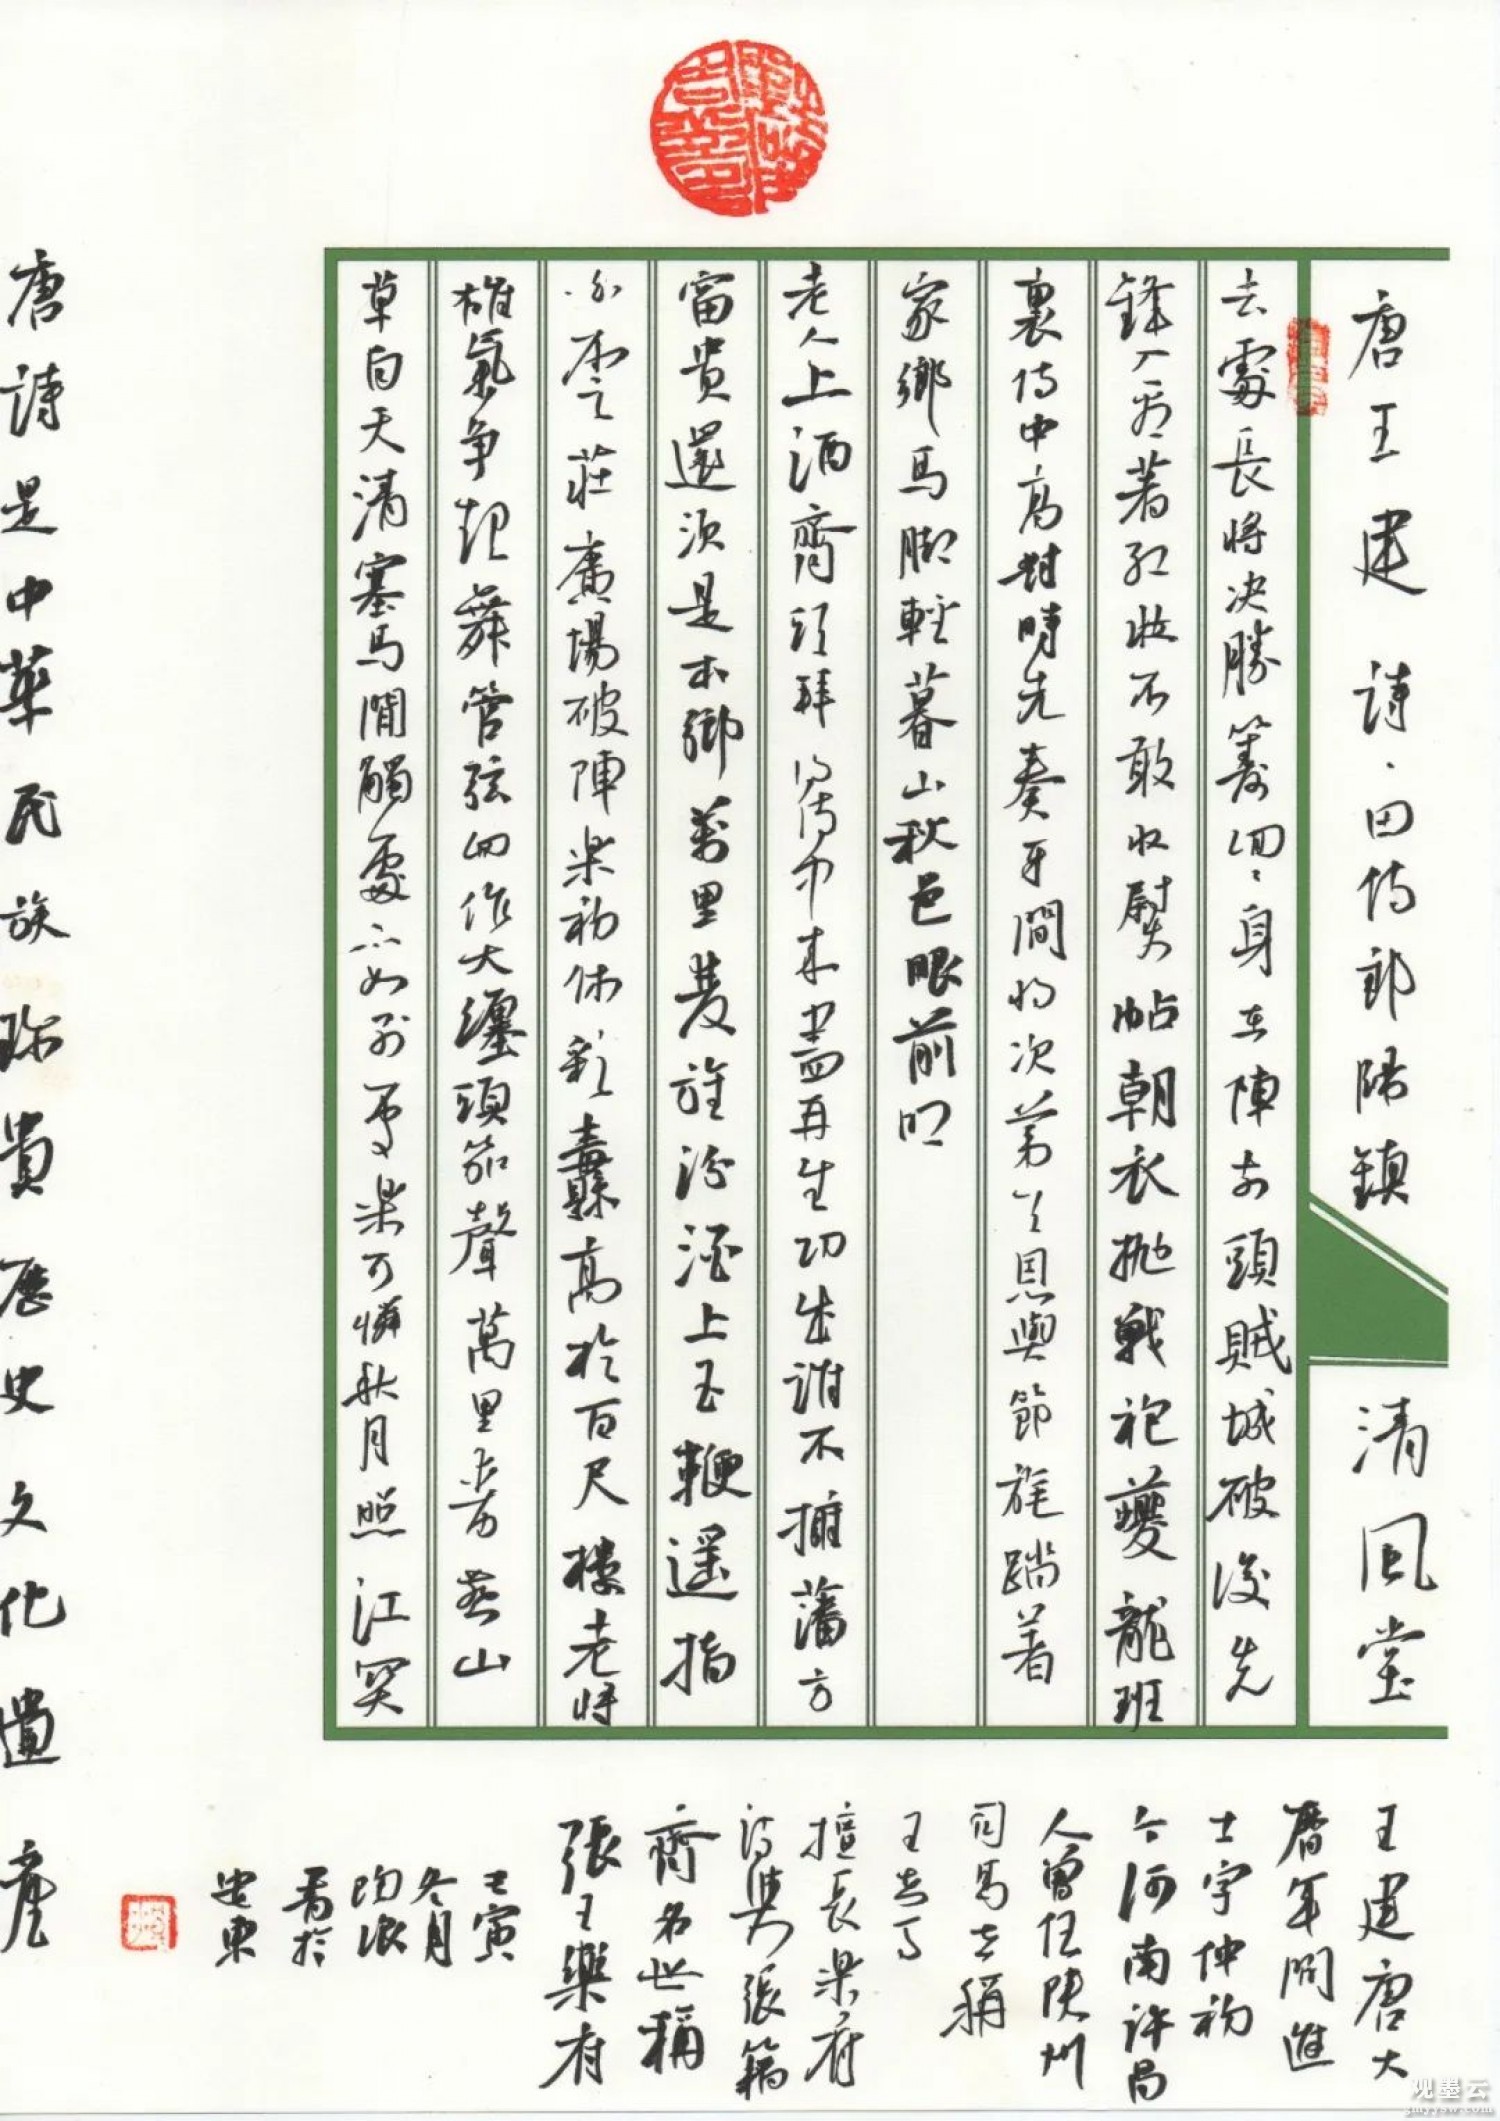 唐王建詩·田侍郎歸鎮　清風堂
去處長將決勝籌回〻身在陣前頭賊城破後先
鋒入看〻著紅妝不敢收熨帖朝衣抛戰袍夔龍班
裏侍中高對時先奏牙間將次第〻恩與節旄踏著
家鄉馬脚輕暮山秋色眼前明
老人上酒齊頭拜得侍中來盡再生功成誰不擁藩方
富貴還須是本鄉萬里雙旌汾酒上玉鞭遥指
白雲莊廣場破陣樂初休彩纛高於百尺樓老將
雄氣争起舞管弦回作大纏頭笳聲萬里動燕山
草白天清塞馬閒觸處不如别處樂可憐秋月照江関
王建唐大
曆年間進
士字仲初
今河南許昌
人曾任陝州
司馬世稱
王司馬
擅長樂府
詩與張籍
齊名世稱
張王樂府
壬寅
冬月
書於
遼東
唐詩是中華民族珍貴歷史文化遺産
观墨云
gmyysw.com